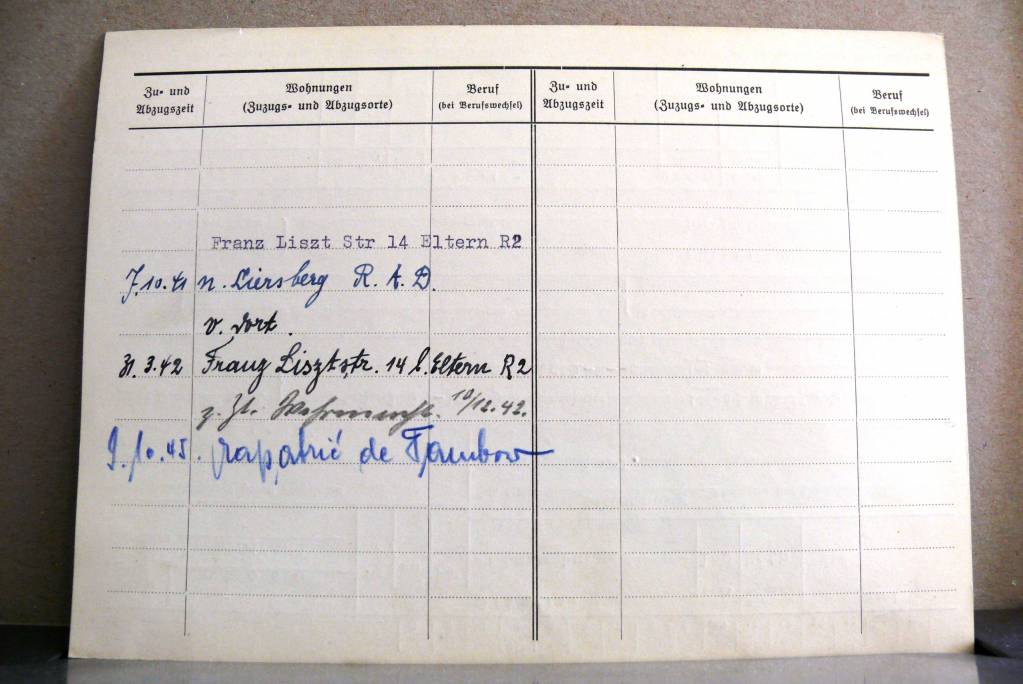 Zu- und Abzugszeit
Wohnungen (Zuzugs- und Abzugsorte)
Beruf (bei Berufswechsel)
Zu- und Abzugszeit
Wohnungen (Zuzugs- und Abzugsorte)
Beruf (bei Berufswechsel)
Franz Liszt Str 14 Eltern R2
7.10.41 n. Liersberg R.A.D.
v. dort.
31.3.42 Franz Lisztstr. 14 b. Eltern R2
z. Zt. Wehrmacht. 10/12.42.
9.10.45. rapatrié de Tambow